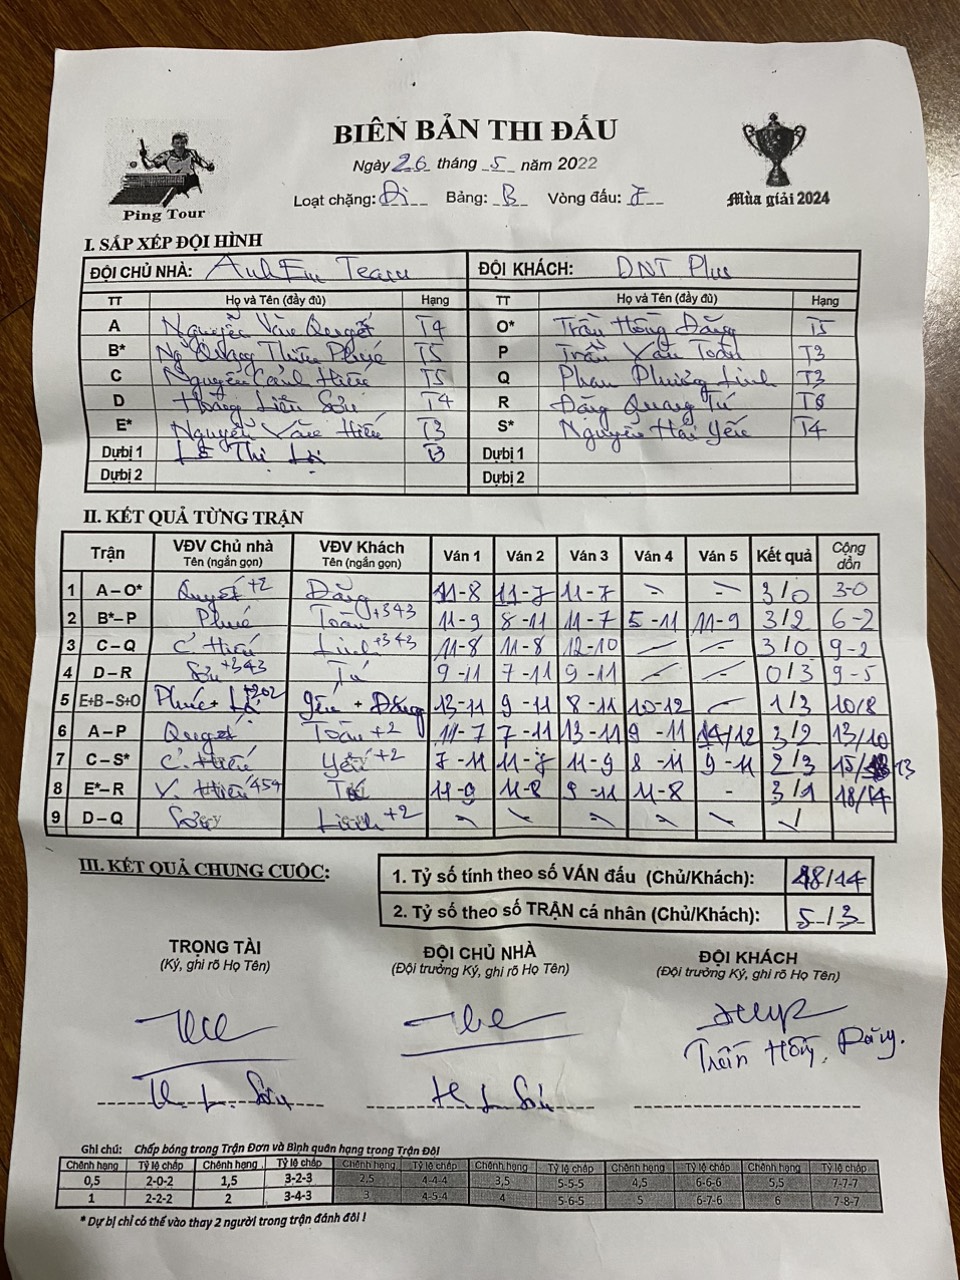 BIÊN BẢN THI ĐẤU
Ngày 26 tháng 5 năm 2022
Loạt chặng: Đi Bảng: B Vòng đấu: I
Ping Tour
Mùa giải 2024
I. SẮP XẾP ĐỘI HÌNH
ĐỘI CHỦ NHÀ: Anh Em Team ĐỘI KHÁCH: DNT Plus
TT Họ và Tên (đầy đủ) Hạng TT Họ và Tên (đầy đủ) Hạng
A Nguyễn Văn Quyết T4 O* Trần Hồng Đăng T5
B* Ng Quang Thiều Phúc T5 P Trần Văn Toàn T3
C Nguyễn Cảnh Hiếu T5 Q Phan Phương Linh T3
D Hoàng Liễu Sơn T4 R Đặng Quang Tú
E* Nguyễn Văn Hiếu T3 S* Nguyễn Hải Yến T4
Dự bị 1 Lê Thị Lợi T3 Dự bị 1
Dự bị 2 Dự bị 2
II. KẾT QUẢ TỪNG TRẬN
Trận VĐV Chủ nhà Tên (ngắn gọn) VĐV Khách Tên (ngắn gọn) Ván 1 Ván 2 Ván 3 Ván 4 Ván 5 Kết quả Cộng dồn
1 A – O* Quyết +2 Đăng 11-8 11-7 11-7 - - 3/0 3-0
2 B* – P Phúc Toàn +343 11-9 8-11 11-7 5-11 11-9 3/2 6-2
3 C – Q C Hiếu Linh +343 11-8 11-8 12-10 - - 3/0 9-2
4 D – R Sơn +343 Tú 9-11 7-11 9-11 - - 0/3 9-5
5 E+B – S+O Phúc + Lợi +202 Yến + Đăng 13-11 9-11 8-11 10-12 - 1/3 10/8
6 A – P Quyết Toàn +2 11-7 7-11 13-11 9-11 14/12 3/2 13/10
7 C – S* C. Hiếu Yến +2 7-11 11-7 11-9 8-11 9-11 2/3 15/13
8 E* – R V. Hiếu 454 Tú 11-9 11-8 9-11 11-8 - 3/1 18/14
9 D – Q Sơn Linh +2 - - - - - /
III. KẾT QUẢ CHUNG CUỘC:
1. Tỷ số tính theo số VÁN đấu (Chủ/Khách): 18/14
2. Tỷ số theo số TRẬN cá nhân (Chủ/Khách): 5/3
TRỌNG TÀI ĐỘI CHỦ NHÀ ĐỘI KHÁCH
(Ký, ghi rõ Họ Tên) (Đội trưởng Ký, ghi rõ Họ Tên) (Đội trưởng Ký, ghi rõ Họ Tên)
Trần Hồng Đăng.
H. L. Sơn H. L. Sơn
Ghi chú: Chấp bóng trong Trận Đơn và Bình quân hạng trong Trận Đôi
Chênh hạng Tỷ lệ chấp Chênh hạng Tỷ lệ chấp Chênh hạng Tỷ lệ chấp Chênh hạng Tỷ lệ chấp Chênh hạng Tỷ lệ chấp Chênh hạng Tỷ lệ chấp
0,5 2-0-2 1,5 3-2-3 2,5 4-4-4 3,5 5-5-5 4,5 6-6-6 5,5 7-7-7
1 2-2-2 2 3-4-3 3 4-5-4 4 5-6-5 5 6-7-6 6 7-8-7
* Dự bị chỉ có thể vào thay 2 người trong trận đánh đôi !